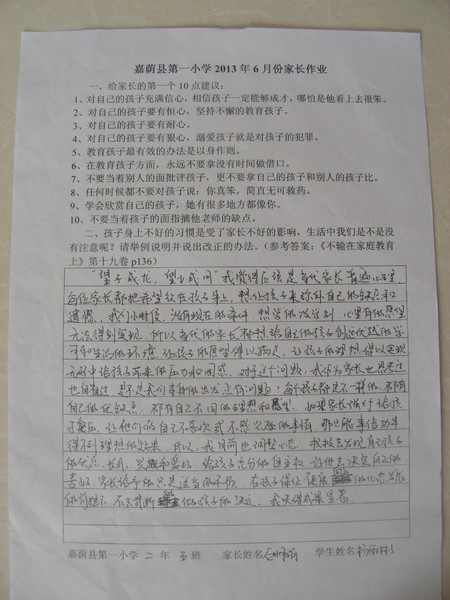 嘉荫县第一小学 2013 年 6 月份家长作业
一、给家长的第一个 10 点建议：
1、对自己的孩子充满信心，相信孩子一定能够成才，哪怕是他看上去很笨。
2、对自己的孩子要有恒心，坚持不懈的教育孩子。
3、对自己的孩子要有耐心。
4、对自己的孩子要有狠心，溺爱孩子就是对孩子的犯罪。
5、教育孩子最有效的办法是以身作则。
6、在教育孩子方面，永远不要拿没有时间做借口。
7、不要当着别人的面批评孩子，更不要拿自己的孩子和别人的孩子比。
8、任何时候都不要对孩子说：你真笨，简直无可救药。
9、学会欣赏自己的孩子，她有很多地方都像你。
10、不要当着孩子的面指摘他老师的缺点。
二、孩子身上不好的习惯是受了家长不好的影响，生活中我们是不是没
有注意呢？请举例说明并说出改正的办法。（参考答案：《不输在家庭教育
上》第十九卷 p136）
"望子成龙，望女成凤"我觉得应该是当代家长普遍心理，
每位家长都把希望放在孩子身上，想让孩子来弥补自己的缺点和
遗憾。我们小时候，没有现在的条件，想学的没学到，心里有的愿望
无法得到实现，所以当代的家长都想给自己的孩子创造优越的学
习和生活的环境，让孩子的愿望得以满足，让孩子的理想得以实现
无形中给孩子带来的压力和困惑。对于这个问题，我作为家长也思考过
也自责过，是不是我们本身的出发点有问题，每个孩子都是不一样的，都有
自己的优缺点，都有自己不同的理想和愿望，如果家长强行给孩
子施压，让他们做自己不喜欢或不感兴趣的事情，那只能事倍功半
得不到理想的效果。所以，我目前也调整心态，
的优点、长处、兴趣和爱好，给孩子充分的自主权，让他去决定自己的
喜好，家长给予的只是适当的 在孩子保证健康 的心态
的前提下，不去 孩子的决定，我觉得效果显著
嘉荫县第一小学 二 年 3 班 家长姓名 学生姓名